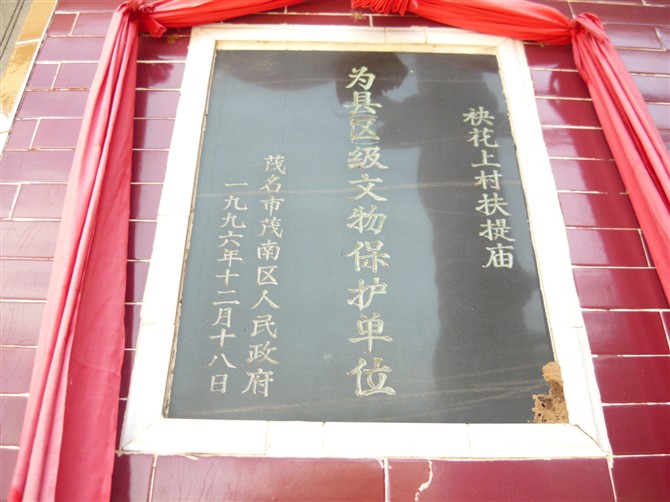 袂花上村扶提庙
为县区级文物保护单位
茂名市茂南区人民政府
一九九六年十二月十八日